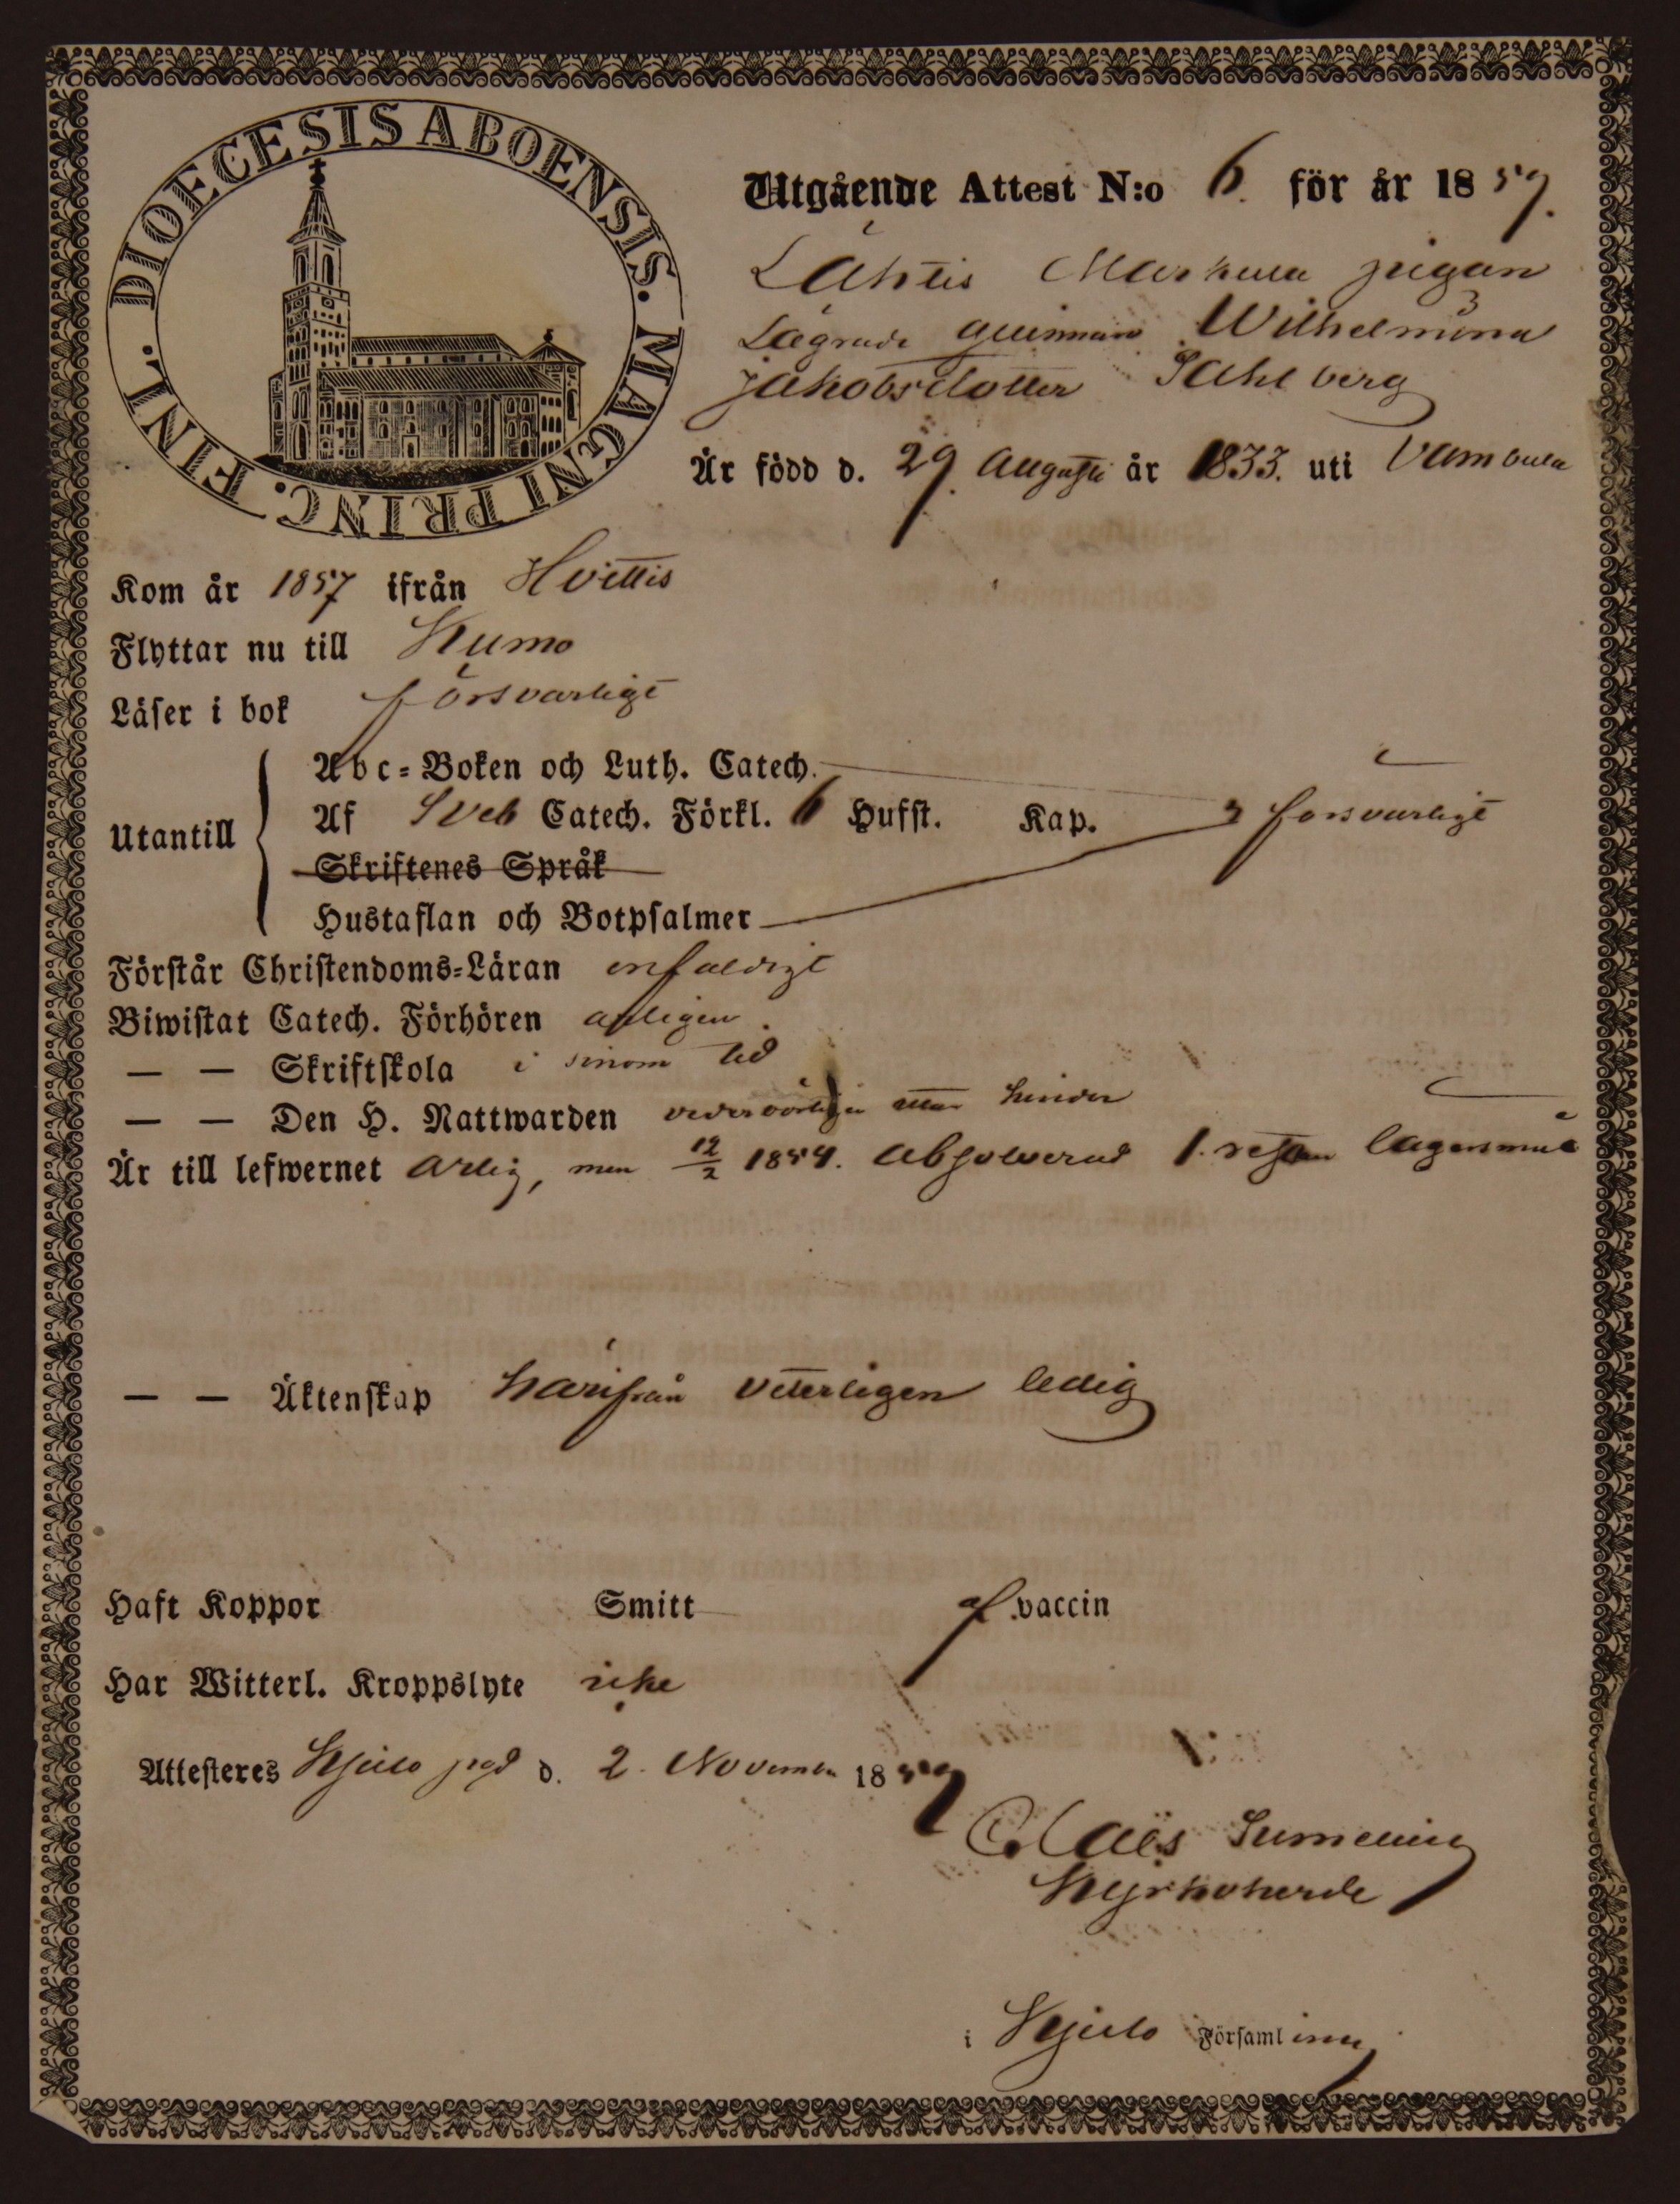 DIOECESIS ABOENSIS. MAGNI PRINC. FINL.
Utgående Attest N:o 6. för år 1859.
Lähtis Markula pigan
Lägrade qvinnan Wilhelmina
Jakobsdotter Sahlberg
Är född d. 29. Augusti år 1833. uti Vambula
Kom år 1857 ifrån Hvittis
Flyttar nu till Kumo
Läser i bok försvarligt
Utantill
Abc-Boken och Luth. Catech.
Af Sveb Catech. Förkl. 6 Hufst. Kap. försvarligt
Skriftenes Språk
Hustaflan och Botpsalmer
Förstår Christendoms-Läran enfaldigt
Biwistat Catech. Förhören årligen.
— — Skriftskola i sinom tid
— — Den H. Nattwarden vederbörligen utan hinder
Är till lefwernet ärlig, men 12/2 1854. absolverad 1. resan lägersmål
— — Äktenskap härifrån veterligen ledig
Haft Koppor Smitt af vaccin
Har Witterl. Kroppslyte icke
Attesteres Kjulo pgd d. 2. November 1859
Claës Sumelius
Kyrkoherde
i Kjulo Församling